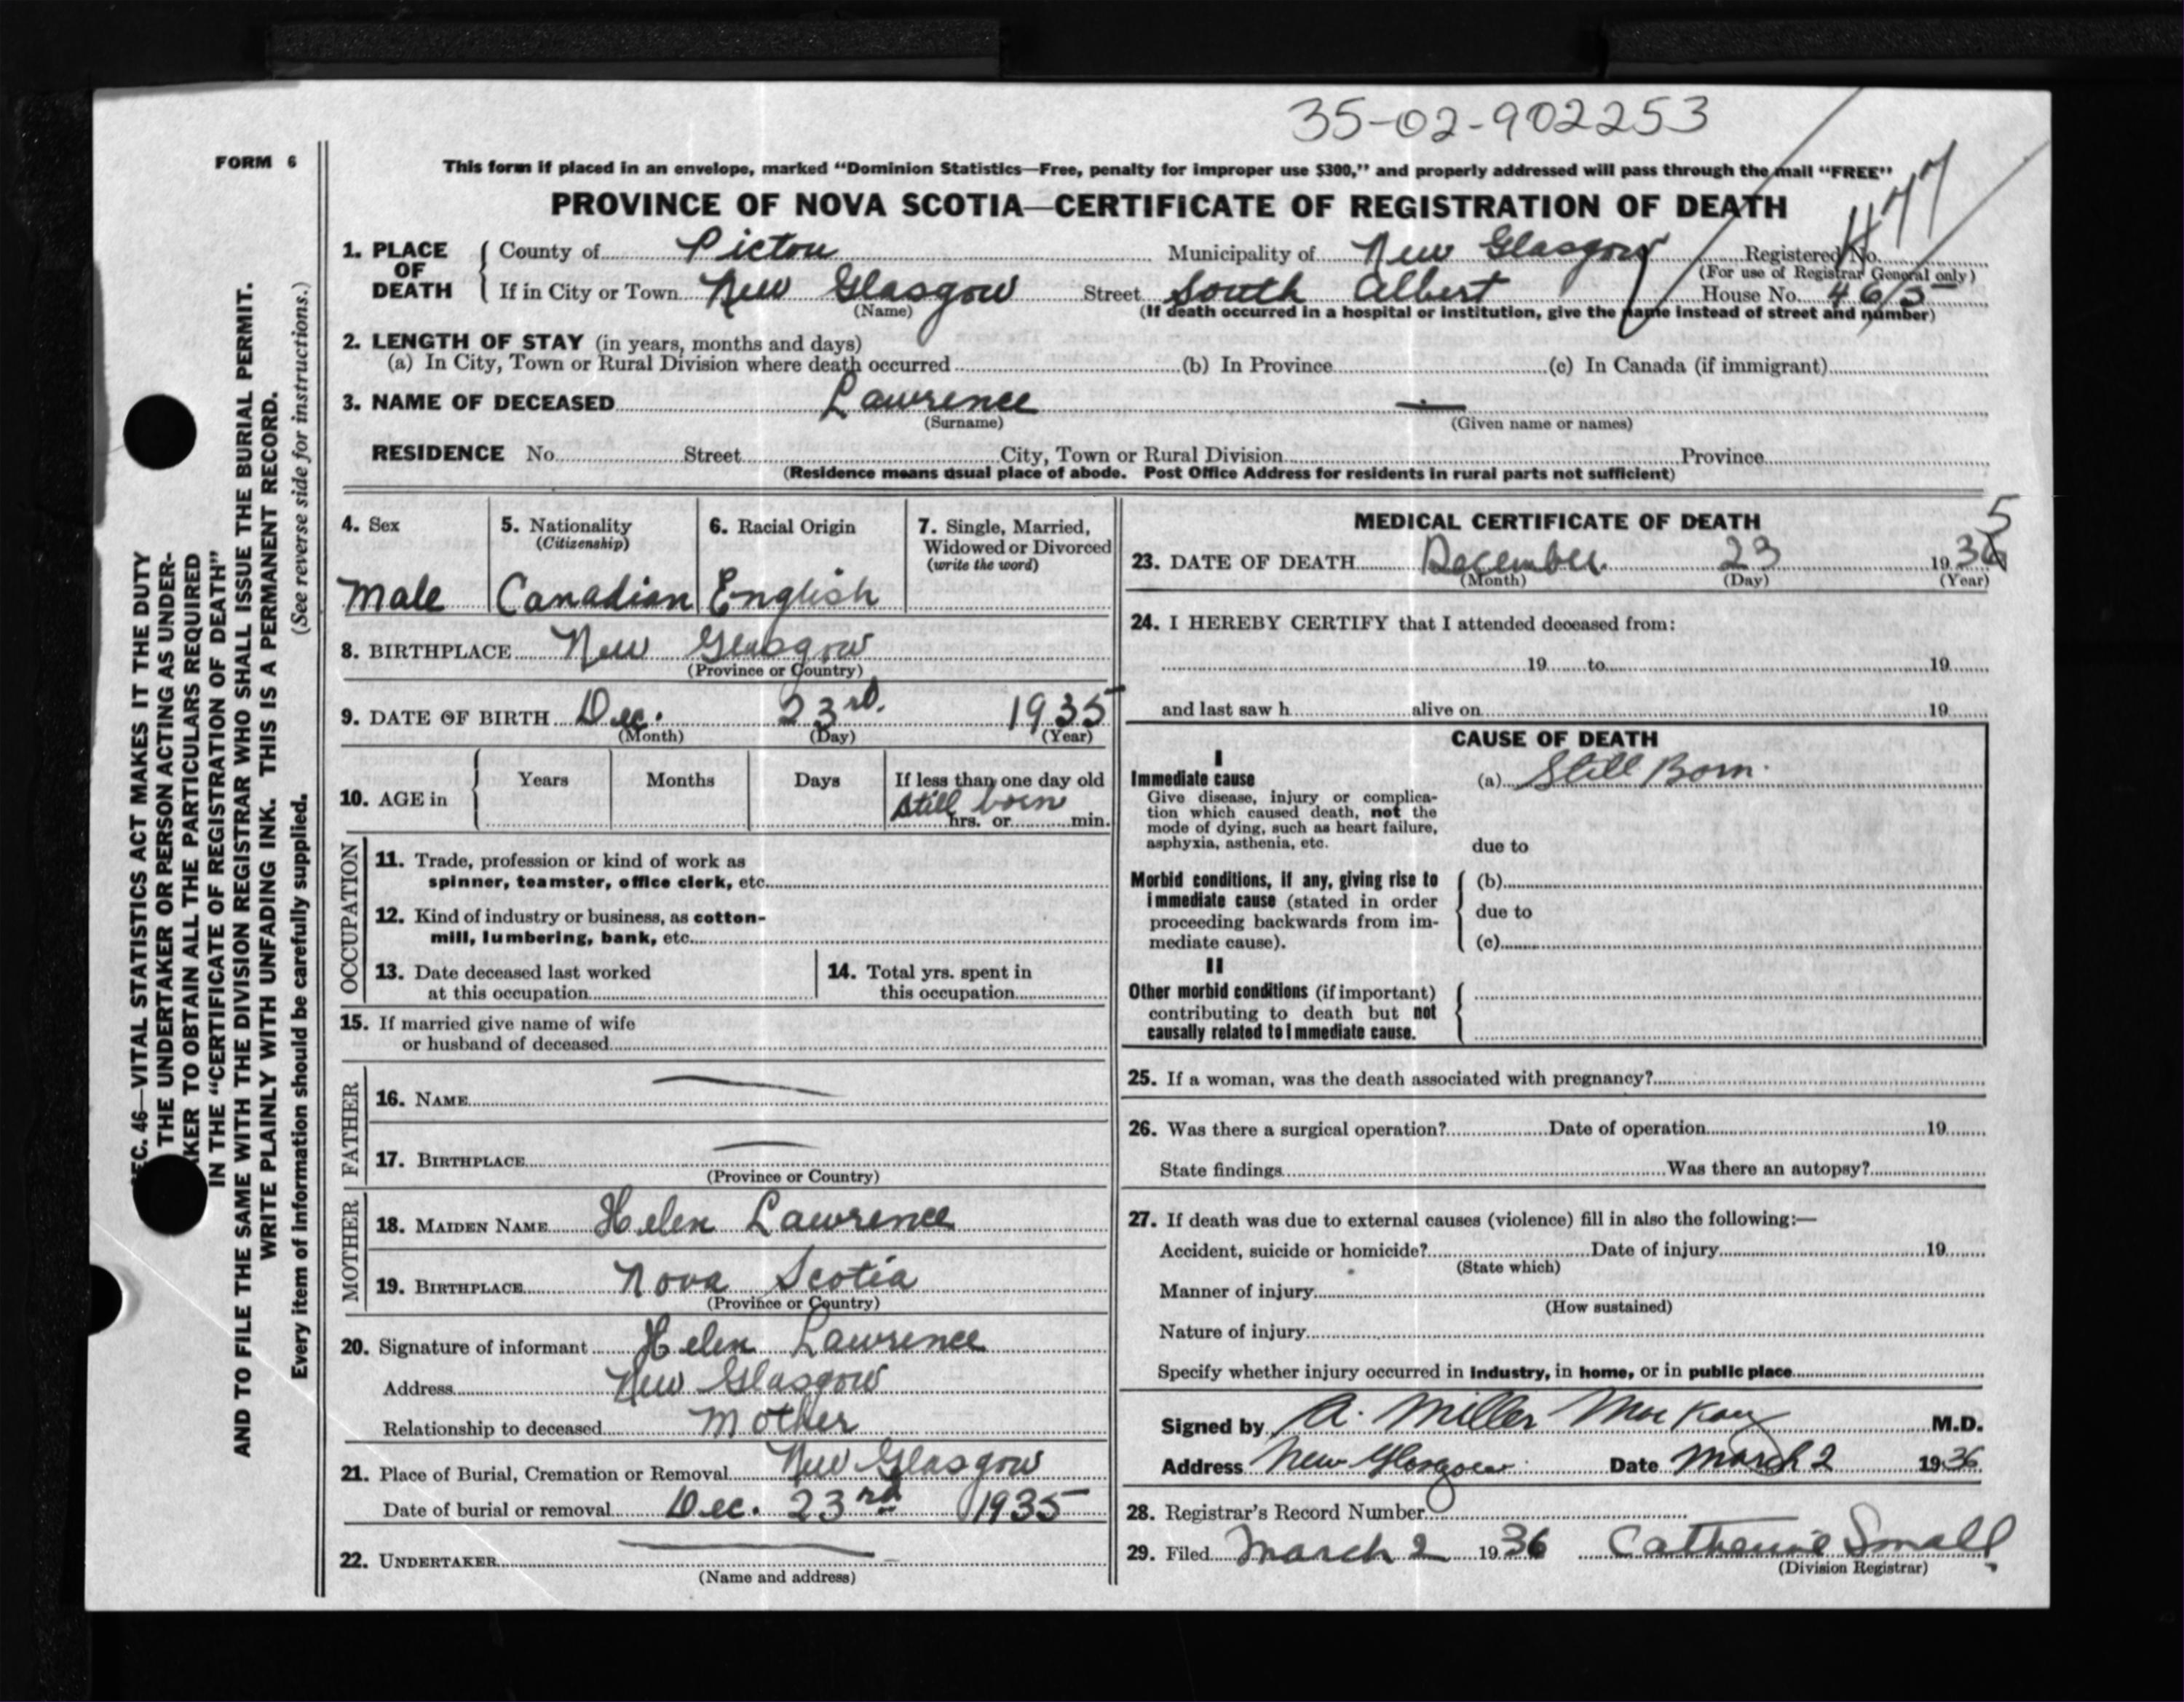 35-02-902253
FORM 6
This form if placed in an envelope, marked "Dominion Statistics—Free, penalty for improper use $300," and properly addressed will pass through the mail "FREE"
PROVINCE OF NOVA SCOTIA—CERTIFICATE OF REGISTRATION OF DEATH
1. PLACE OF DEATH County of Pictou Municipality of New Glasgow Registered No.
(For use of Registrar General only)
If in City or Town New Glasgow Street South Albert House No.
(Name) (If death occurred in a hospital or institution, give the name instead of street and number)
2. LENGTH OF STAY (in years, months and days)
(a) In City, Town or Rural Division where death occurred (b) In Province (c) In Canada (if immigrant)
3. NAME OF DECEASED Lawrence —
(Surname) (Given name or names)
RESIDENCE No. Street City, Town or Rural Division Province
(Residence means usual place of abode. Post Office Address for residents in rural parts not sufficient)
4. Sex
Male
5. Nationality
(Citizenship)
Canadian
6. Racial Origin
English
7. Single, Married,
Widowed or Divorced
(write the word)
8. BIRTHPLACE New Glasgow
(Province or Country)
9. DATE OF BIRTH Dec. 23rd. 1935
(Month) (Day) (Year)
10. AGE in Years Months Days If less than one day old
Still born
hrs. or min.
OCCUPATION
11. Trade, profession or kind of work as
spinner, teamster, office clerk, etc.
12. Kind of industry or business, as cotton-
mill, lumbering, bank, etc.
13. Date deceased last worked
at this occupation
14. Total yrs. spent in
this occupation
15. If married give name of wife
or husband of deceased
FATHER
16. NAME —
17. BIRTHPLACE —
(Province or Country)
MOTHER
18. MAIDEN NAME Helen Lawrence
19. BIRTHPLACE Nova Scotia
(Province or Country)
20. Signature of informant Helen Lawrence
Address New Glasgow
Relationship to deceased Mother
21. Place of Burial, Cremation or Removal New Glasgow
Date of burial or removal Dec. 23rd 1935
22. UNDERTAKER —
(Name and address)
MEDICAL CERTIFICATE OF DEATH
5
23. DATE OF DEATH December 23 1936
(Month) (Day) (Year)
24. I HEREBY CERTIFY that I attended deceased from:
19 to 19
and last saw h alive on 19
CAUSE OF DEATH
I
Immediate cause
Give disease, injury or complica-
tion which caused death, not the
mode of dying, such as heart failure,
asphyxia, asthenia, etc.
(a) Still Born.
due to
Morbid conditions, if any, giving rise to
immediate cause (stated in order
proceeding backwards from im-
mediate cause).
(b)
due to
(c)
II
Other morbid conditions (if important)
contributing to death but not
causally related to immediate cause.
25. If a woman, was the death associated with pregnancy?
26. Was there a surgical operation? Date of operation 19
State findings Was there an autopsy?
27. If death was due to external causes (violence) fill in also the following:—
Accident, suicide or homicide? Date of injury 19
(State which)
Manner of injury
(How sustained)
Nature of injury
Specify whether injury occurred in industry, in home, or in public place
Signed by A. Miller MacKay M.D.
Address New Glasgow Date March 2 1936
28. Registrar's Record Number
29. Filed March 2 1936 Catherine Small
(Division Registrar)
SEC. 46—VITAL STATISTICS ACT MAKES IT THE DUTY
THE UNDERTAKER OR PERSON ACTING AS UNDER-
TAKER TO OBTAIN ALL THE PARTICULARS REQUIRED
IN THE "CERTIFICATE OF REGISTRATION OF DEATH"
AND TO FILE THE SAME WITH THE DIVISION REGISTRAR WHO SHALL ISSUE THE BURIAL PERMIT.
WRITE PLAINLY WITH UNFADING INK. THIS IS A PERMANENT RECORD.
Every item of information should be carefully supplied. (See reverse side for instructions.)